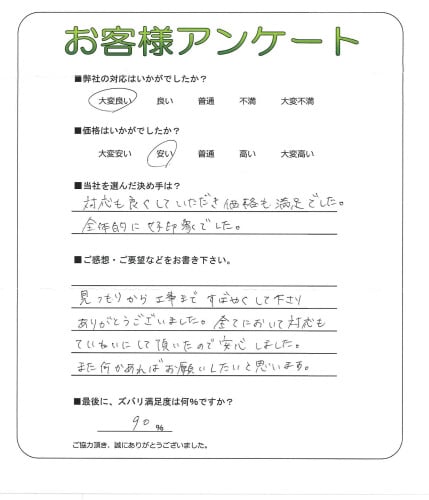 お客様アンケート
■弊社の対応はいかがでしたか？
大変良い 良い 普通 不満 大変不満
■価格はいかがでしたか？
大変安い 安い 普通 高い 大変高い
■当社を選んだ決め手は？
対応も良くしていただき価格も満足でした。
全体的に好印象でした。
■ご感想・ご要望などをお書き下さい。
見つもりから工事まですばやくして下さり
ありがとうございました。全てにおいて対応も
ていねいにして頂いたので安心しました。
また何かあればお願いしたいと思います。
■最後に、ズバリ満足度は何%ですか？
90 %
ご協力頂き、誠にありがとうございました。